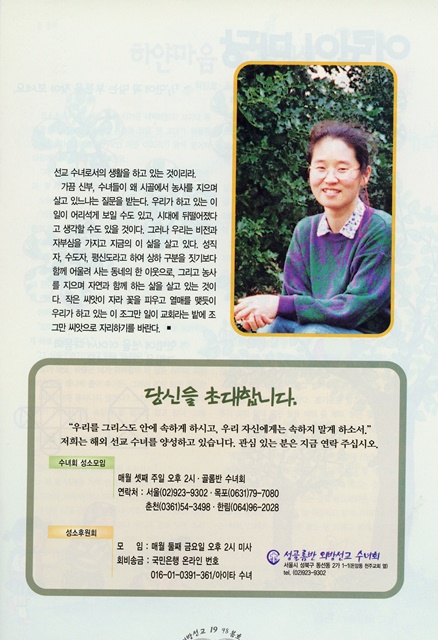 선교 수녀로서의 생활을 하고 있는 것이리라.
가끔 신부, 수녀들이 왜 시골에서 농사를 지으며
살고 있느냐는 질문을 받는다. 우리가 하고 있는 이
일이 어리석게 보일 수도 있고, 시대에 뒤떨어졌다
고 생각할 수도 있을 것이다. 그러나 우리는 비전과
자부심을 가지고 지금의 이 삶을 살고 있다. 성직
자, 수도자, 평신도라고 하여 상하 구분을 짓기보다
함께 어울려 사는 동네의 한 이웃으로, 그리고 농사
를 지으며 자연과 함께 하는 삶을 살고 있는 것이
다. 작은 씨앗이 자라 꽃을 피우고 열매를 맺듯이
우리가 하고 있는 이 조그만 일이 교회라는 밭에 조
그만 씨앗으로 자리하기를 바란다. ■
당신을 초대합니다.
“우리를 그리스도 안에 속하게 하시고, 우리 자신에게는 속하지 말게 하소서.”
저희는 해외 선교 수녀를 양성하고 있습니다. 관심 있는 분은 지금 연락 주십시오.
수녀회 성소모임
매월 셋째 주일 오후 2시 · 골롬반 수녀회
연락처 : 서울(02)923-9302 · 목포(0631)79-7080
춘천(0361)54-3498 · 한림(064)96-2028
성소후원회
모 임 : 매월 둘째 금요일 오후 2시 미사
회비송금 : 국민은행 온라인 번호
016-01-0391-361/아이타 수녀
성골롬반 외방선교 수녀회
서울시 성북구 동선동 2가 1-1(돈암동 천주교회 옆)
tel. (02)923-9302